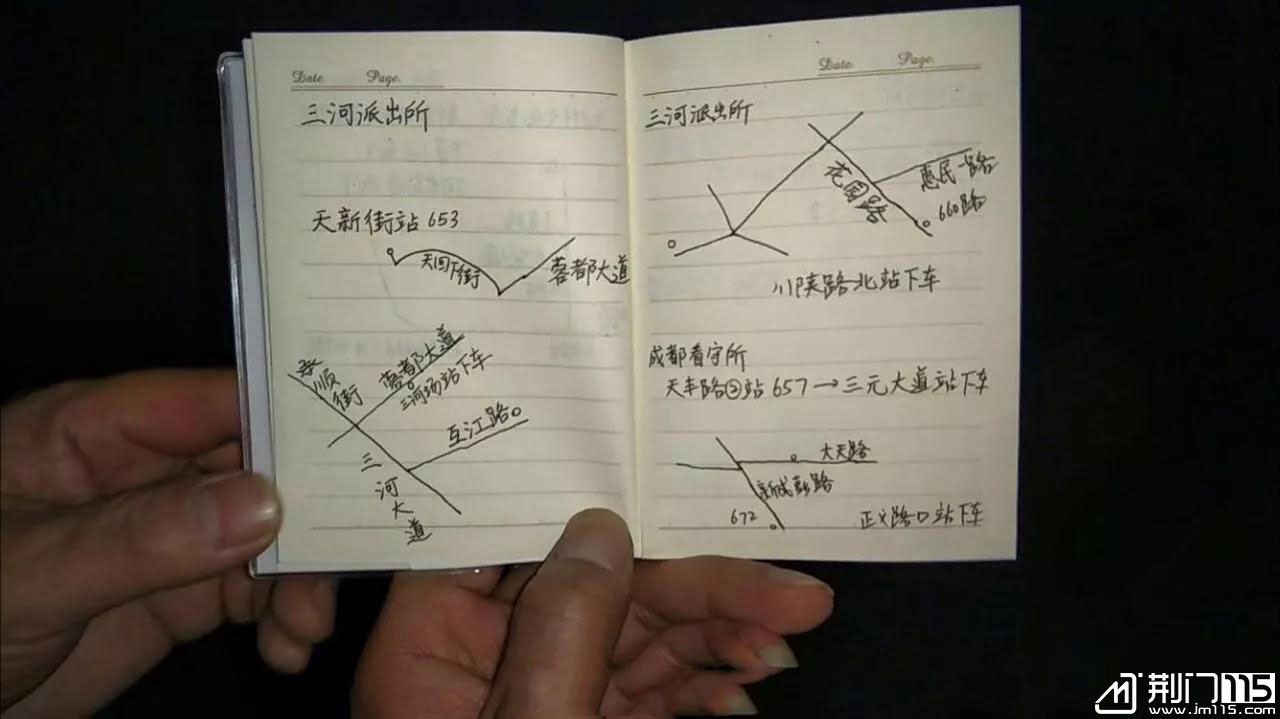 Date. Page.
三河派出所
天新街站 653
天回下街
蓉都大道
顺街
蓉都大道
三河场站下车
互江路
三河大道
Date. Page.
三河派出所
花园路
惠民路
660路
川陕路北站下车
成都看守所
天丰路②站 657→三元大道站下车
大天路
新成彭路
672
正义路口站下车
荆门115
www.jm115.com